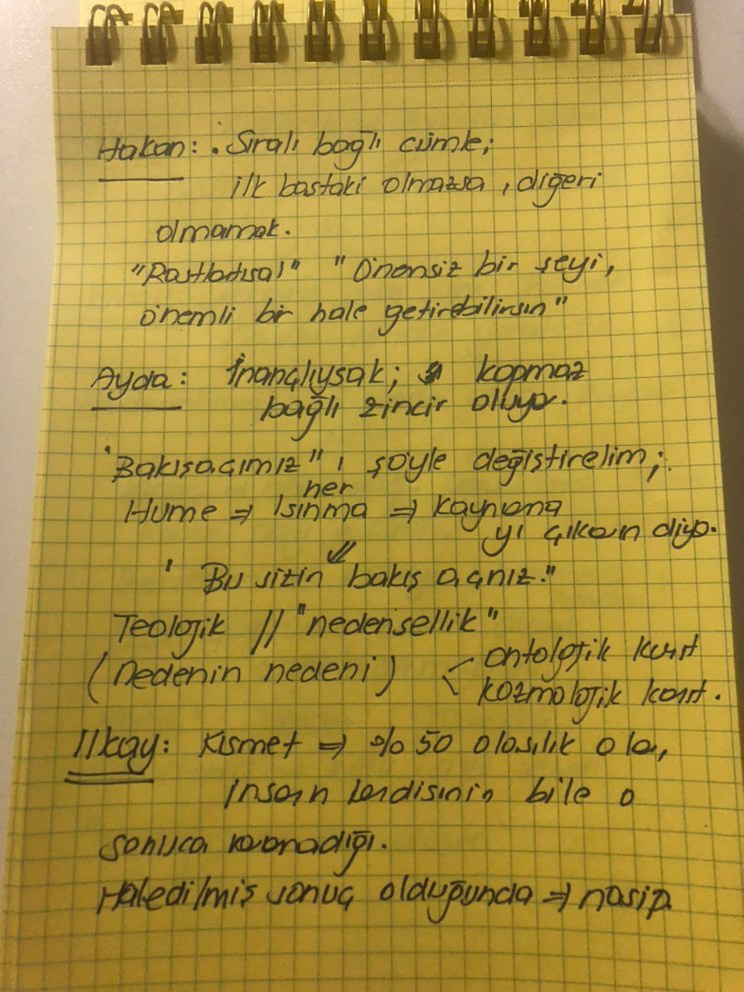 Hakan: . Sıralı bağlı cümle;
ilk bastaki olmazsa, diğeri
olmamak.
"Rastlatısal" "Önensiz bir şeyi,
önemli bir hale getirebilirsin"
Ayda: İnançlıysak; kopmaz
bağlı zincir oluyo.
"Bakısaçımız" ı şöyle değiştirelim;
her
Hume ⇒ Isınma ⇒ kaynama
yı çıkarın diyo.
" Bu sizin bakış açınız."
Teolojik // "nedensellik"
(Nedenin nedeni) ontolojik kanıt
kozmolojik kanıt.
Ilkay: Kısmet ⇒ %50 olasılık ola,
insan kendisinin bile o
sonuca
Haledilmiş sonuç olduğunda ⇒ nasip